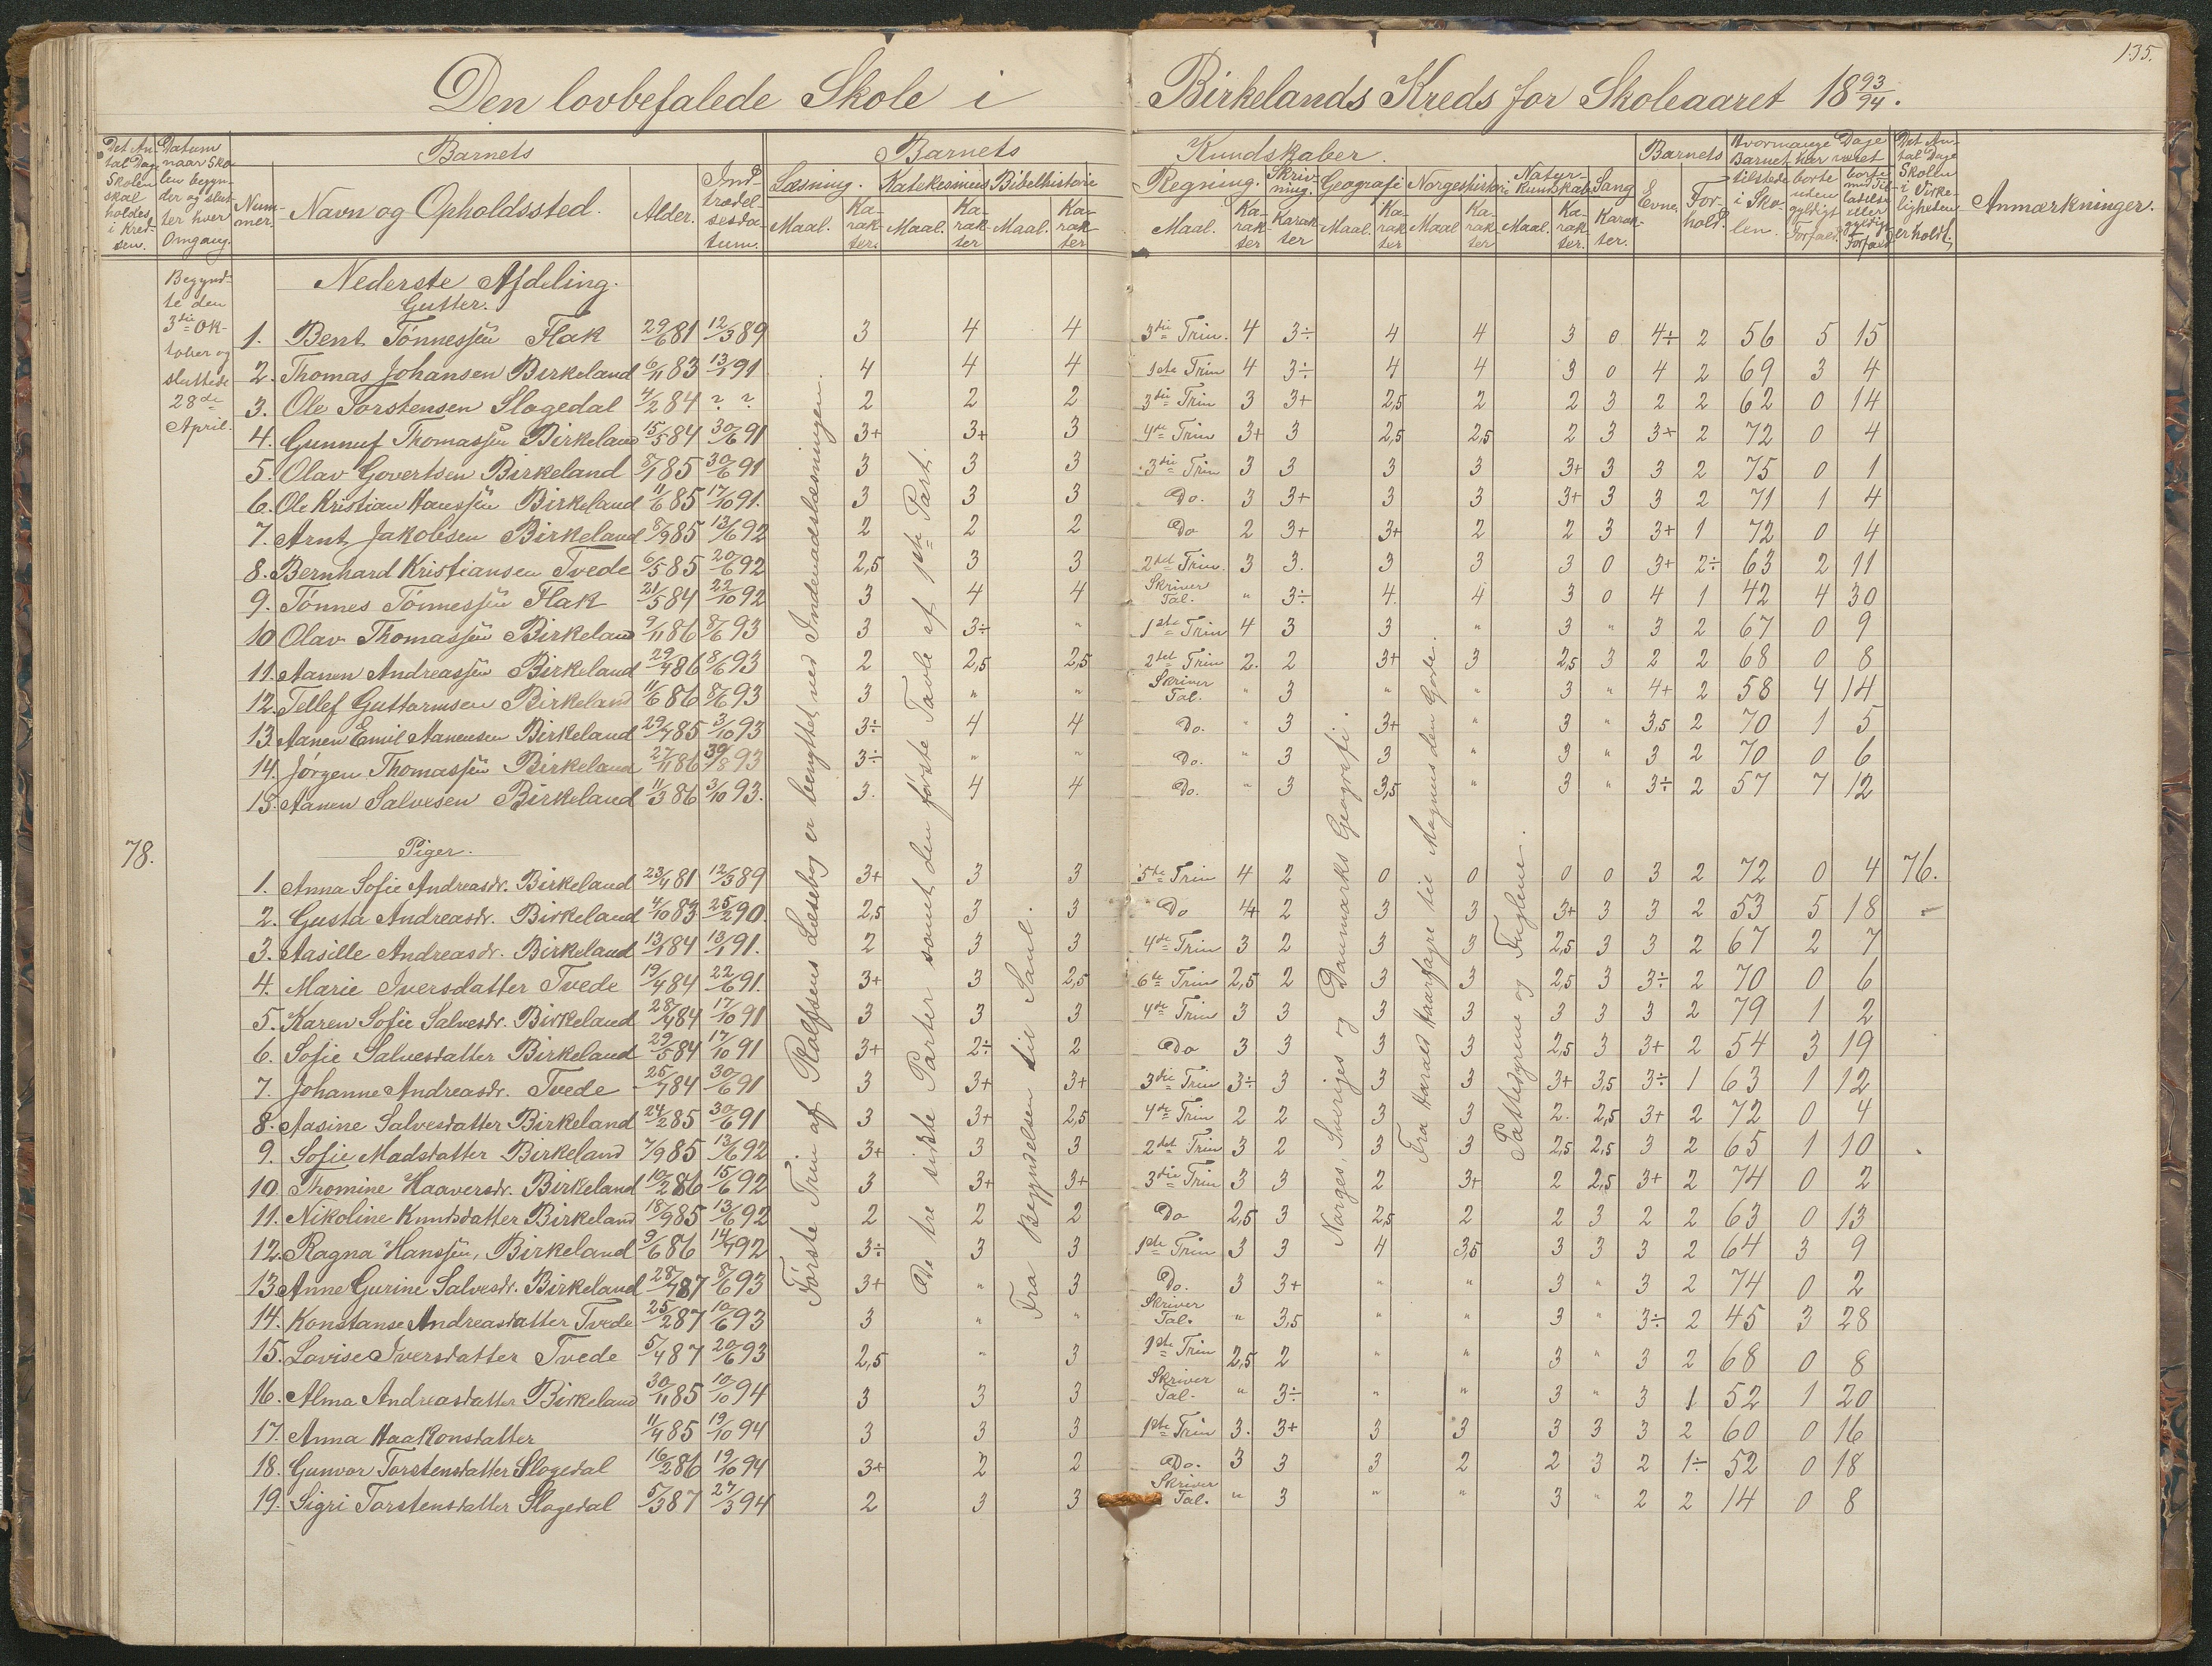 135.
Den lovbefalede Skole i Birkelands Kreds for Skoleaaret 18 93/94.
Det An-tal Dage Skolen skal holdes i Kred-sen.
Datum naar Sko-len begyn-der og slut-ter hver Omgang.
Barnets
Num-mer. Navn og Opholdssted. Alder. Ind-trædel-sesda-tum.
Barnets Kundskaber.
Læsning. Katekesimus Bibelhistorie Regning. Skriv-ning. Geografi Norgeshistorie Natur-kundskab Sang
Maal. Ka-rak-ter. Maal. Ka-rak-ter Maal. Ka-rak-ter Maal. Ka-rak-ter Karak-ter Maal. Ka-rak-ter Maal Ka-rak-ter Maal. Ka-rak-ter. Karak-ter.
Barnets Evne. For-hold.
Hvormange Dage Barnet har været
tilstede i Sko-len. borte uden gyldigt Forfald. borte med Til-ladelse eller gyldigt Forfald
Det An-tal Dage Skolen i Virke-ligheden er holdt.
Anmærkninger.
Begynd-te den 3die Ok-tober og sluttede 28de April.
Nederste Afdeling.
Gutter.
1. Bent Tönnessön Flak 29/6 81 12/3 89 3 4 4 3die Trin. 4 3÷ 4 4 3 0 4÷ 2 56 5 15
2. Thomas Johansen Birkeland 6/11 83 13/1 91 4 4 4 1ste Trin 4 3÷ 4 4 3 0 4 2 69 3 4
3. Ole Torstensen Slogedal 4/2 84 ? ? 2 2 2 3die Trin 3 3+ 2,5 2 2 3 2 2 62 0 14
4. Gunnuf Thomassön Birkeland 15/5 84 30/6 91 3+ 3+ 3 4de Trin 3+ 3 2,5 2,5 2 3 3+ 2 72 0 4
5. Olav Govertsen Birkeland 8/1 85 30/6 91 3 3 3 3die Trin 3 3 3 3 3+ 3 3 2 75 0 1
6. Ole Kristian Hanssön Birkeland 11/6 85 17/10 91. 3 3 3 Do. 3 3+ 3 3 3+ 3 3 2 71 1 4
7. Arnt Jakobsen Birkeland 8/9 85 13/6 92 2 2 2 Do 2 3+ 3+ 2 2 3 3+ 1 72 0 4
8. Bernhard Kristiansen Tvede 6/5 85 20/6 92 2,5 3 3 2det Trin. 3 3. 3 3 3 0 3+ 2÷ 63 2 11
9. Tönnes Tönnessön Flak 21/5 84 22/10 92 3 4 4 Skriver Tal. " 3÷ 4. 4 3 0 4 1 42 4 30
10 Olav Thomassön Birkeland 9/11 86 8/6 93 3 3÷ " 1ste Trin 4 3 3 " 3 " 3 2 67 0 9
11. Aanen Andreassön Birkeland 29/4 86 8/6 93 2 2,5 2,5 2det Trin 2. 2 3+ 3 2,5 3 2 2 68 0 8
12. Tellef Guttormsen Birkeland 11/6 86 8/6 93 3 " " Skriver Tal. " 3 " " 3 " 4+ 2 58 4 14
13. Aanen Emil Aanensen Birkeland 29/7 85 3/10 93 3÷ 4 4 Do. " 3 3+ " 3 " 3,5 2 70 1 5
14. Jörgen Thomassön Birkeland 27/11 86 30/8 93 3÷ " " Do. " 3 3 " 3 " 3 2 70 0 6
15. Aanen Salvesen Birkeland 11/3 86 3/10 93. 3. 4 4 Do. " 3 3,5 " 3 " 3÷ 2 57 7 12
78.
Piger.
1. Anna Sofie Andreasdr. Birkeland 23/4 81 12/3 89 3+ 3 3 5te Trin 4 2 0 0 0 0 3 2 72 0 4 76.
2. Gusta Andreasdr. Birkeland 4/10 83 25/2 90. 2,5 3 3 Do 4 2 3 3 3+ 3 3 2 53 5 18
3. Aasille Andreasdr. Birkeland 13/1 84 13/1 91. 2 3 3 4de Trin 3 2 3 3 2,5 3 3 2 67 2 7
4. Marie Iversdatter Tvede 19/4 84 22/6 91. 3+ 3 2,5 6te Trin 2,5 2 3 3 2,5 3 3÷ 2 70 0 6
5. Karen Sofie Salvesdr. Birkeland 28/4 84 17/10 91 3 3 3 4de Trin 3 3 3 3 3 3 3 2 79 1 2
6. Sofie Salvesdatter Birkeland 29/5 84 17/10 91 3+ 2÷ 2 Do 3 3 3 3 2,5 3 3+ 2 54 3 19
7. Johanne Andreasdr. Tvede 25/7 84 30/6 91 3 3+ 3+ 3die Trin 3÷ 3 3 3 3+ 3,5 3÷ 1 63 1 12
8. Aasine Salvesdatter Birkeland 24/2 85 30/6 91 3 3+ 2,5 4de Trin 2 2 3 3 2. 2,5 3+ 2 72 0 4
9. Sofie Madsdatter Birkeland 7/9 85 13/6 92 3+ 3 3 2det Trin 3 2 3 3 2,5 2,5 3 2 65 1 10
10. Thomine Haaversdr. Birkeland 10/2 86 15/6 92 3 3+ 3+ 3die Trin 3 3 2 3+ 2 2,5 3+ 2 74 0 2
11. Nikoline Knutsdatter Birkeland 18/9 85 13/6 92 2 2 2 Do 2,5 3 2,5 2 2 3 2 2 63 0 13
12. Ragna Hanssön, Birkeland 9/6 86 14/7 92 3÷ 3 3 1ste Trin 3 3 4 3,5 3 3 3 2 64 3 9
13. Anne Gurine Salvesdr. Birkeland 28/7 87 8/6 93 3+ " 3 Do. 3 3+ " " 3 " 3 2 74 0 2
14. Konstanse Andreasdatter Tvede 25/2 87 10/6 93 3 " " Skriver Tal. " 3,5 " " 3 " 3÷ 2 45 3 28
15. Lovise Iversdatter Tvede 5/4 87 20/6 93 2,5 " 3 1ste Trin 2,5 2 " " 3 " 3 2 68 0 8
16. Alma Andreasdatter Birkeland 30/11 85 10/10 94 3 3 3 Skriver Tal. " 3÷ " " 3 " 3 1 52 1 20
17. Anna Haakonsdatter 11/4 85 19/10 94 3 3 3 1ste Trin 3. 3+ 3 3 3 3 3 2 60 0 16
18. Gunvor Torstensdatter Slogedal 16/2 86 19/10 94 3+ 2 2 Do. 3 3 3 2 2 3 2 1÷ 52 0 18
19. Sigri Torstensdatter Slogedal 5/3 87 27/3 94 2 3 3 Skriver Tal. " 3 " " 3 " 2 2 14 0 8
Förste Trin af Rolfsens Læsebog er benyttet ved Indenadslæsningen.
De tre sidste Parter samt den förste Tavle af 1ste Part.
Fra Begyndelsen til Saul.
Norges, Sveriges og Danmarks Geografi.
Fra Harald Haarfagre til Magnus den Gode.
Pattedyrene og Fuglene.